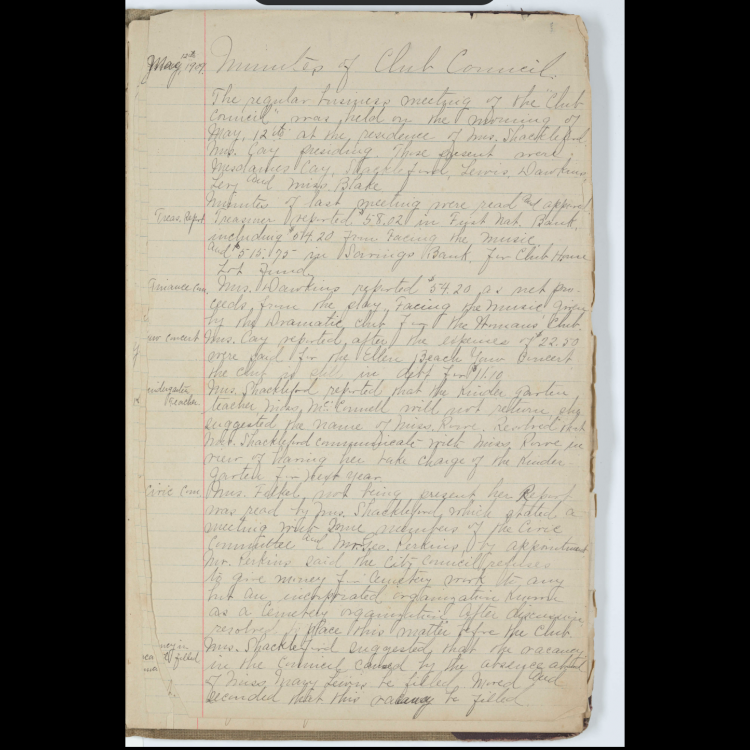 May 12th 1909 Minutes of Club Council.
The regular business meeting of the "Club
Council" was held on the morning of
May, 12th at the residence of Mrs. Shackleford
Mrs. Cay presiding Those present were,
Mesdames Cay, Shackleford, Lewis, Dawkins,
Levy and Miss. Blake
Minutes of last meeting were read and approved
Treas. Report. Treasurer reported $58.02 in First Nat. Bank,
including $54.20 from Facing the Music
and $515.75 in Savings Bank, for Club House
Lot Fund,
Finance Com. Mrs. Dawkins reported $54.20 as net pro-
ceeds, from the play, Facing the Music given
by the Dramatic club for the Womans Club.
concert Mrs. Cay reported, after the expenses of $22.50
were paid for the Ellen Beach Yaw Concert
the club is still in debt for $11.10
Kindergarten Mrs. Shackleford reported that the Kinder garten
Teacher. teacher Miss. McConnell will not return she
suggested the name of Miss. Rowe. Resolved that
Mrs. Shackleford communicate with Miss. Rowe in
view of having her take charge of the Kinder
Garten for next year
Civic Com. Mrs. not being present her Report
was read by Mrs. Shackleford, which stated a
meeting with some members of the Civic
Committee and Perkins, by appointment
Mr. Perkins said the City Council refuses
to give money for Cemetery work to any
but an incorporated organization known
as a Cemetery organization. After discussion
resolved to place this matter before the Club.
Mrs. Shackleford suggested that the vacancy
filled in the Council caused by the absence
of Miss. Mary Lewis be filled. Moved and
seconded that this vacancy be filled.